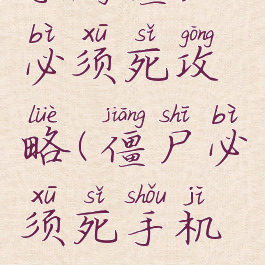 bì xū sǐ gōng
必须死攻
lüè jiāng shī bì
略(僵尸必
xū sǐ shǒu jī
须死手机